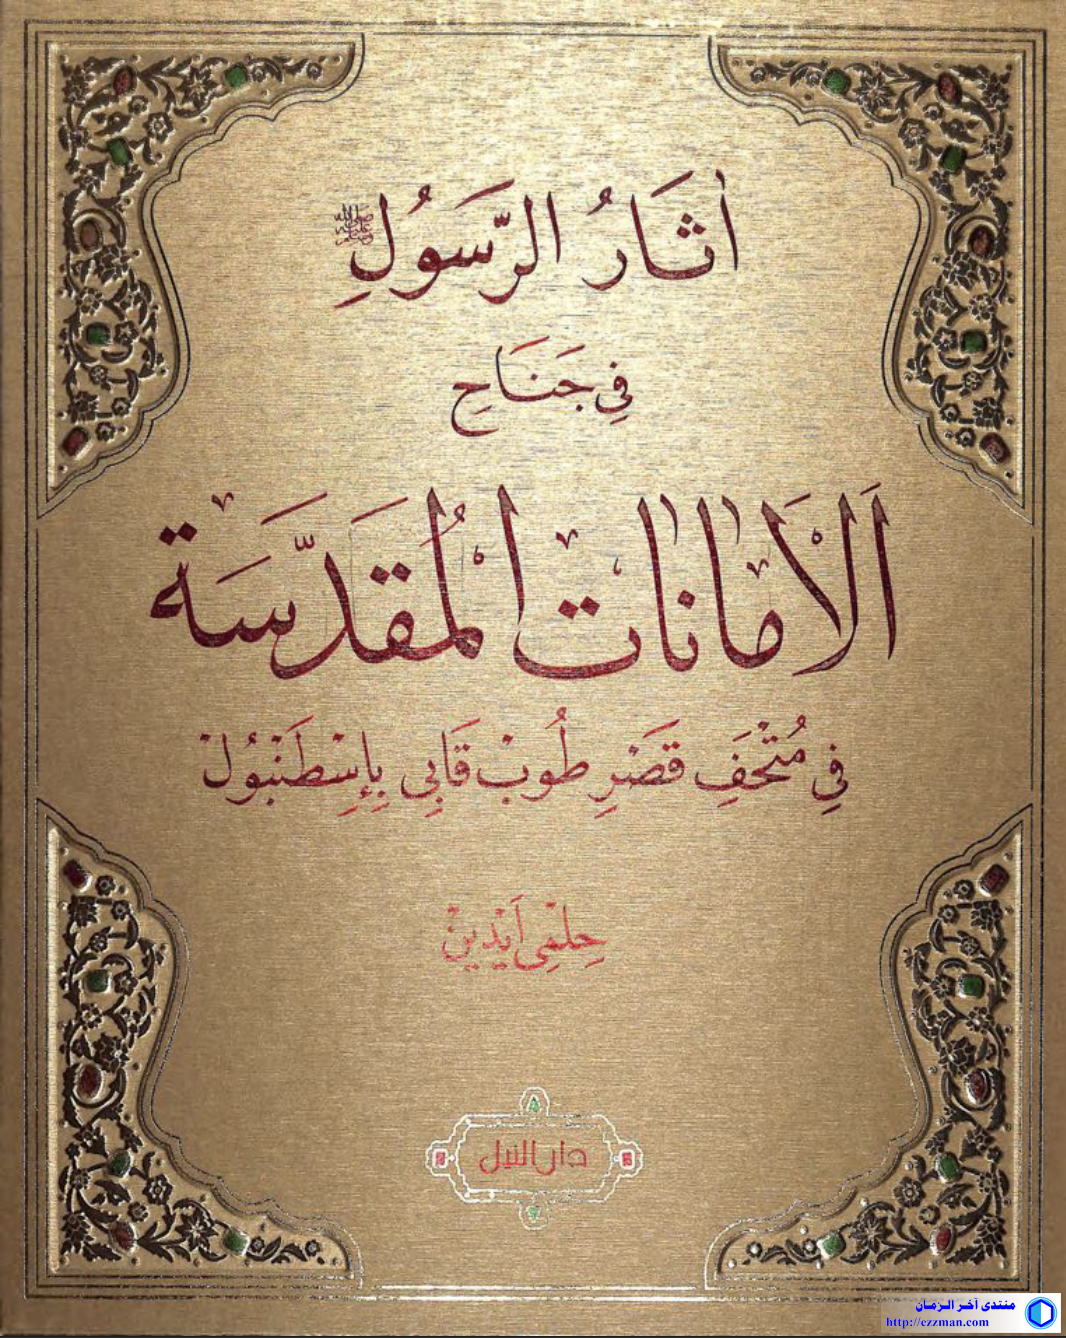 اٰثَارُ الرَّسَوُلِ ﷺ
فِي جَنَاحِ
اَلْاَمَانَات الْمُقَدَّسَة
فِي مُتْحَفِ قَصْرِ طُوبْ قَابِي بِإِسْطَنْبُولْ
حِلْمِي اَيْدِينْ
دار النيل
منتدى آخر الزمان
http://ezzman.com